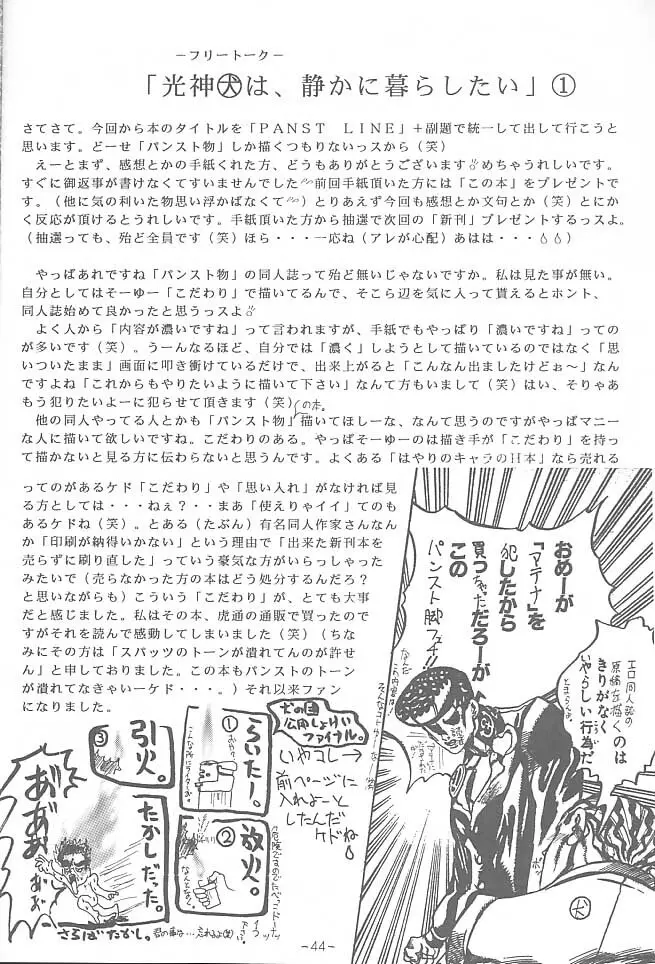 －フリートーク－
「光神犬は、静かに暮らしたい」①
さてさて。今回から本のタイトルを「ＰＡＮＳＴ　ＬＩＮＥ」＋副題で統一して出して行こうと
思います。どーせ「パンスト物」しか描くつもりないっスから（笑）
　えーとまず、感想とかの手紙くれた方、どうもありがとうございます めちゃうれしいです。
すぐに御返事が書けなくてすいませんでした 前回手紙頂いた方には「この本」をプレゼントで
す。（他に気の利いた物思い浮かばなくて ）とりあえず今回も感想とか文句とか（笑）とにか
く反応が頂けるとうれしいです。手紙頂いた方から抽選で次回の「新刊」プレゼントするっスよ。
（抽選っても、殆ど全員です（笑）ほら・・・一応ね（アレが心配）あはは・・・ ）
　やっぱあれですね「パンスト物」の同人誌って殆ど無いじゃないですか。私は見た事が無い。
自分としてはそーゆー「こだわり」で描いてるんで、そこら辺を気に入って貰えるとホント、
同人誌始めて良かったと思うっスよ
　よく人から「内容が濃いですね」って言われますが、手紙でもやっぱり「濃いですね」っての
が多いです（笑）。うーんなるほど、自分では「濃く」しようとして描いているのではなく「思
いついたまま」画面に叩き衝けているだけで、出来上がると「こんなん出ましたけどぉ〜」なん
ですよね「これからもやりたいように描いて下さい」なんて方もいまして（笑）はい、そりゃあ
もう犯りたいよーに犯らせて頂きます（笑）の本。
　他の同人やってる人とかも「パンスト物」描いてほしーな、なんて思うのですがやっぱマニー
な人に描いて欲しいですね。こだわりのある。やっぱそーゆーのは描き手が「こだわり」を持っ
て描かないと見る方に伝わらないと思うんです。よくある「はやりのキャラのＨ本」なら売れる
ってのがあるケド「こだわり」や「思い入れ」がなければ見
る方としては・・・ねぇ？・・まあ「使えりゃイイ」てのも
あるケドね（笑）。とある（たぶん）有名同人作家さんなん
か「印刷が納得いかない」という理由で「出来た新刊本を
売らずに刷り直した」っていう豪気な方がいらっしゃった
みたいで（売らなかった方の本はどう処分するんだろ？
と思いながらも）こういう「こだわり」が、とても大事
だと感じました。私はその本、虎通の通販で買ったので
すがそれを読んで感動してしまいました（笑）（ちな
みにその方は「スパッツのトーンが潰れてんのが許せ
ん」と申しておりました。この本もパンストのトーン
が潰れてなきゃいーケド・・・。）それ以来ファン
になりました。
エロ同人誌の
原稿を描くのは
きりがなく
いやらしい行為だ
おめーが
『マテナ』を
犯したから
買っちゃっただろーが
この
パンスト脚フェチ!!
犬の国
公開しょけい
ファイナル。
いやコレ→
前ページに
入れよーと
したんだ
ケドね
①
らいたー。
②
放火。
③
引火。
たかしだった。
あ゛あ゛あ゛
さらばたかし。
犬
－44－